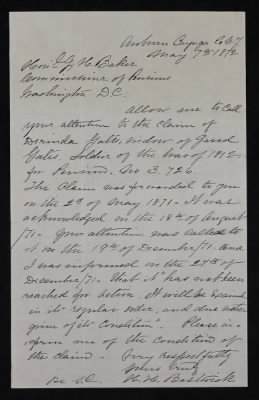 Auburn Cayuga Co N.Y.
May 7th 1872
Hon. J. H. Baker
Commissioner of Pensions
Washington D.C.
Allow me to call
your attention to the claim of
Derinda Gates, widow of Jared
Gates, Soldier of the War of 1812.
for Pension. No 3.726.
The Claim was forwarded to you
on the 2d of May 1871. It was
acknowledged on the 18th of August
/71. Your attention was called to
it on the 19th of December/71. And
I was informed on the 27th of
December/71. that it "has not been
reached for action. It will be
in its regular order, and due notice
given of its condition". Please in-
form me of the condition of
the claim. Very respectfully
Yours truly
H. H. Bostwick